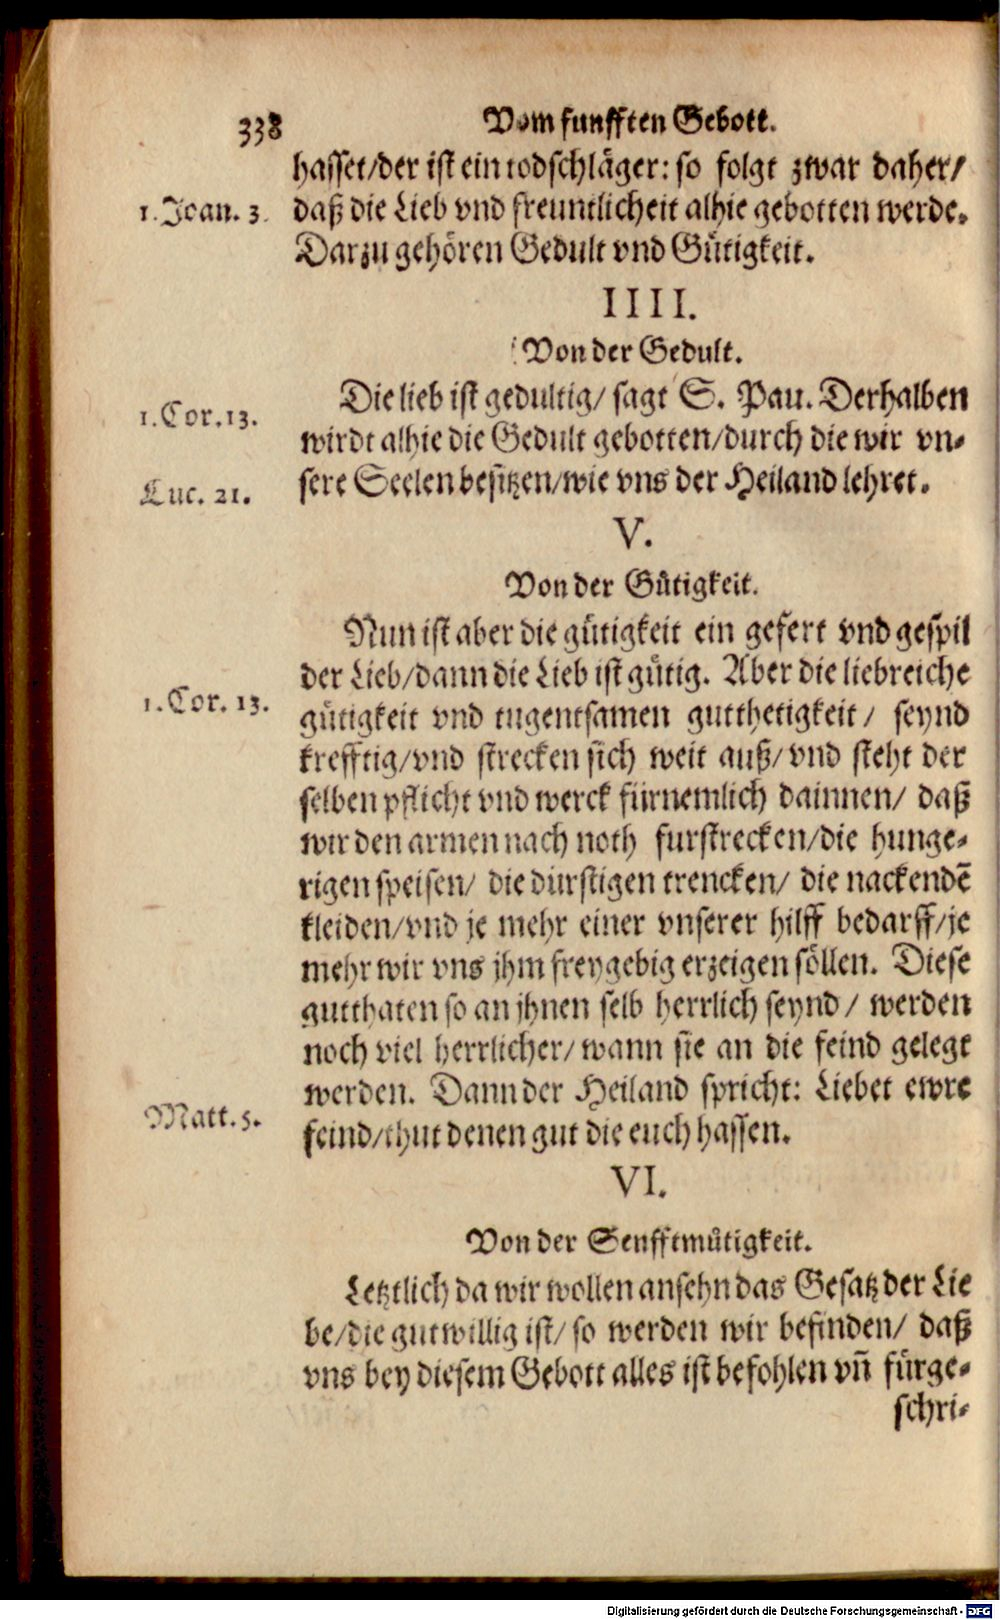 338 Vom funfften Gebott.
hasset/der ist ein todschläger: so folgt zwar daher/
1. Joan. 3. daß die Lieb vnd freuntlicheit alhie gebotten werde.
Darzu gehören Gedult vnd Gütigkeit.
IIII.
Von der Gedult.
Die lieb ist gedultig/ sagt S. Pau. Derhalben
1. Cor. 13. wirdt alhie die Gedult gebotten/durch die wir vn-
Luc. 21. sere Seelen besitzen/wie vns der Heiland lehret.
V.
Von der Gütigkeit.
Nun ist aber die gütigkeit ein gefert vnd gespil
der Lieb/dann die Lieb ist gütig. Aber die liebreiche
1. Cor. 13. gütigkeit vnd tugentsamen gutthetigkeit/ seynd
krefftig/vnd strecken sich weit auß/vnd steht der
selben pflicht vnd werck fürnemlich dainnen/ daß
wir den armen nach noth furstrecken/die hunge-
rigen speisen/ die dürstigen trencken/ die nackendē
kleiden/vnd je mehr einer vnserer hilff bedarff/je
mehr wir vns jhm freygebig erzeigen söllen. Diese
gutthaten so an jhnen selb herrlich seynd/ werden
noch viel herrlicher/wann sie an die feind gelegt
werden. Dann der Heiland spricht: Liebet ewre
Matt. 5. feind/thut denen gut die euch hassen.
VI.
Von der Senfftmütigkeit.
Letztlich da wir wollen ansehn das Gesatz der Lie
be/die gutwillig ist/ so werden wir befinden/ daß
vns bey diesem Gebott alles ist befohlen vn̄ fürge-
schri-
Digitalisierung gefördert durch die Deutsche Forschungsgemeinschaft - DFG